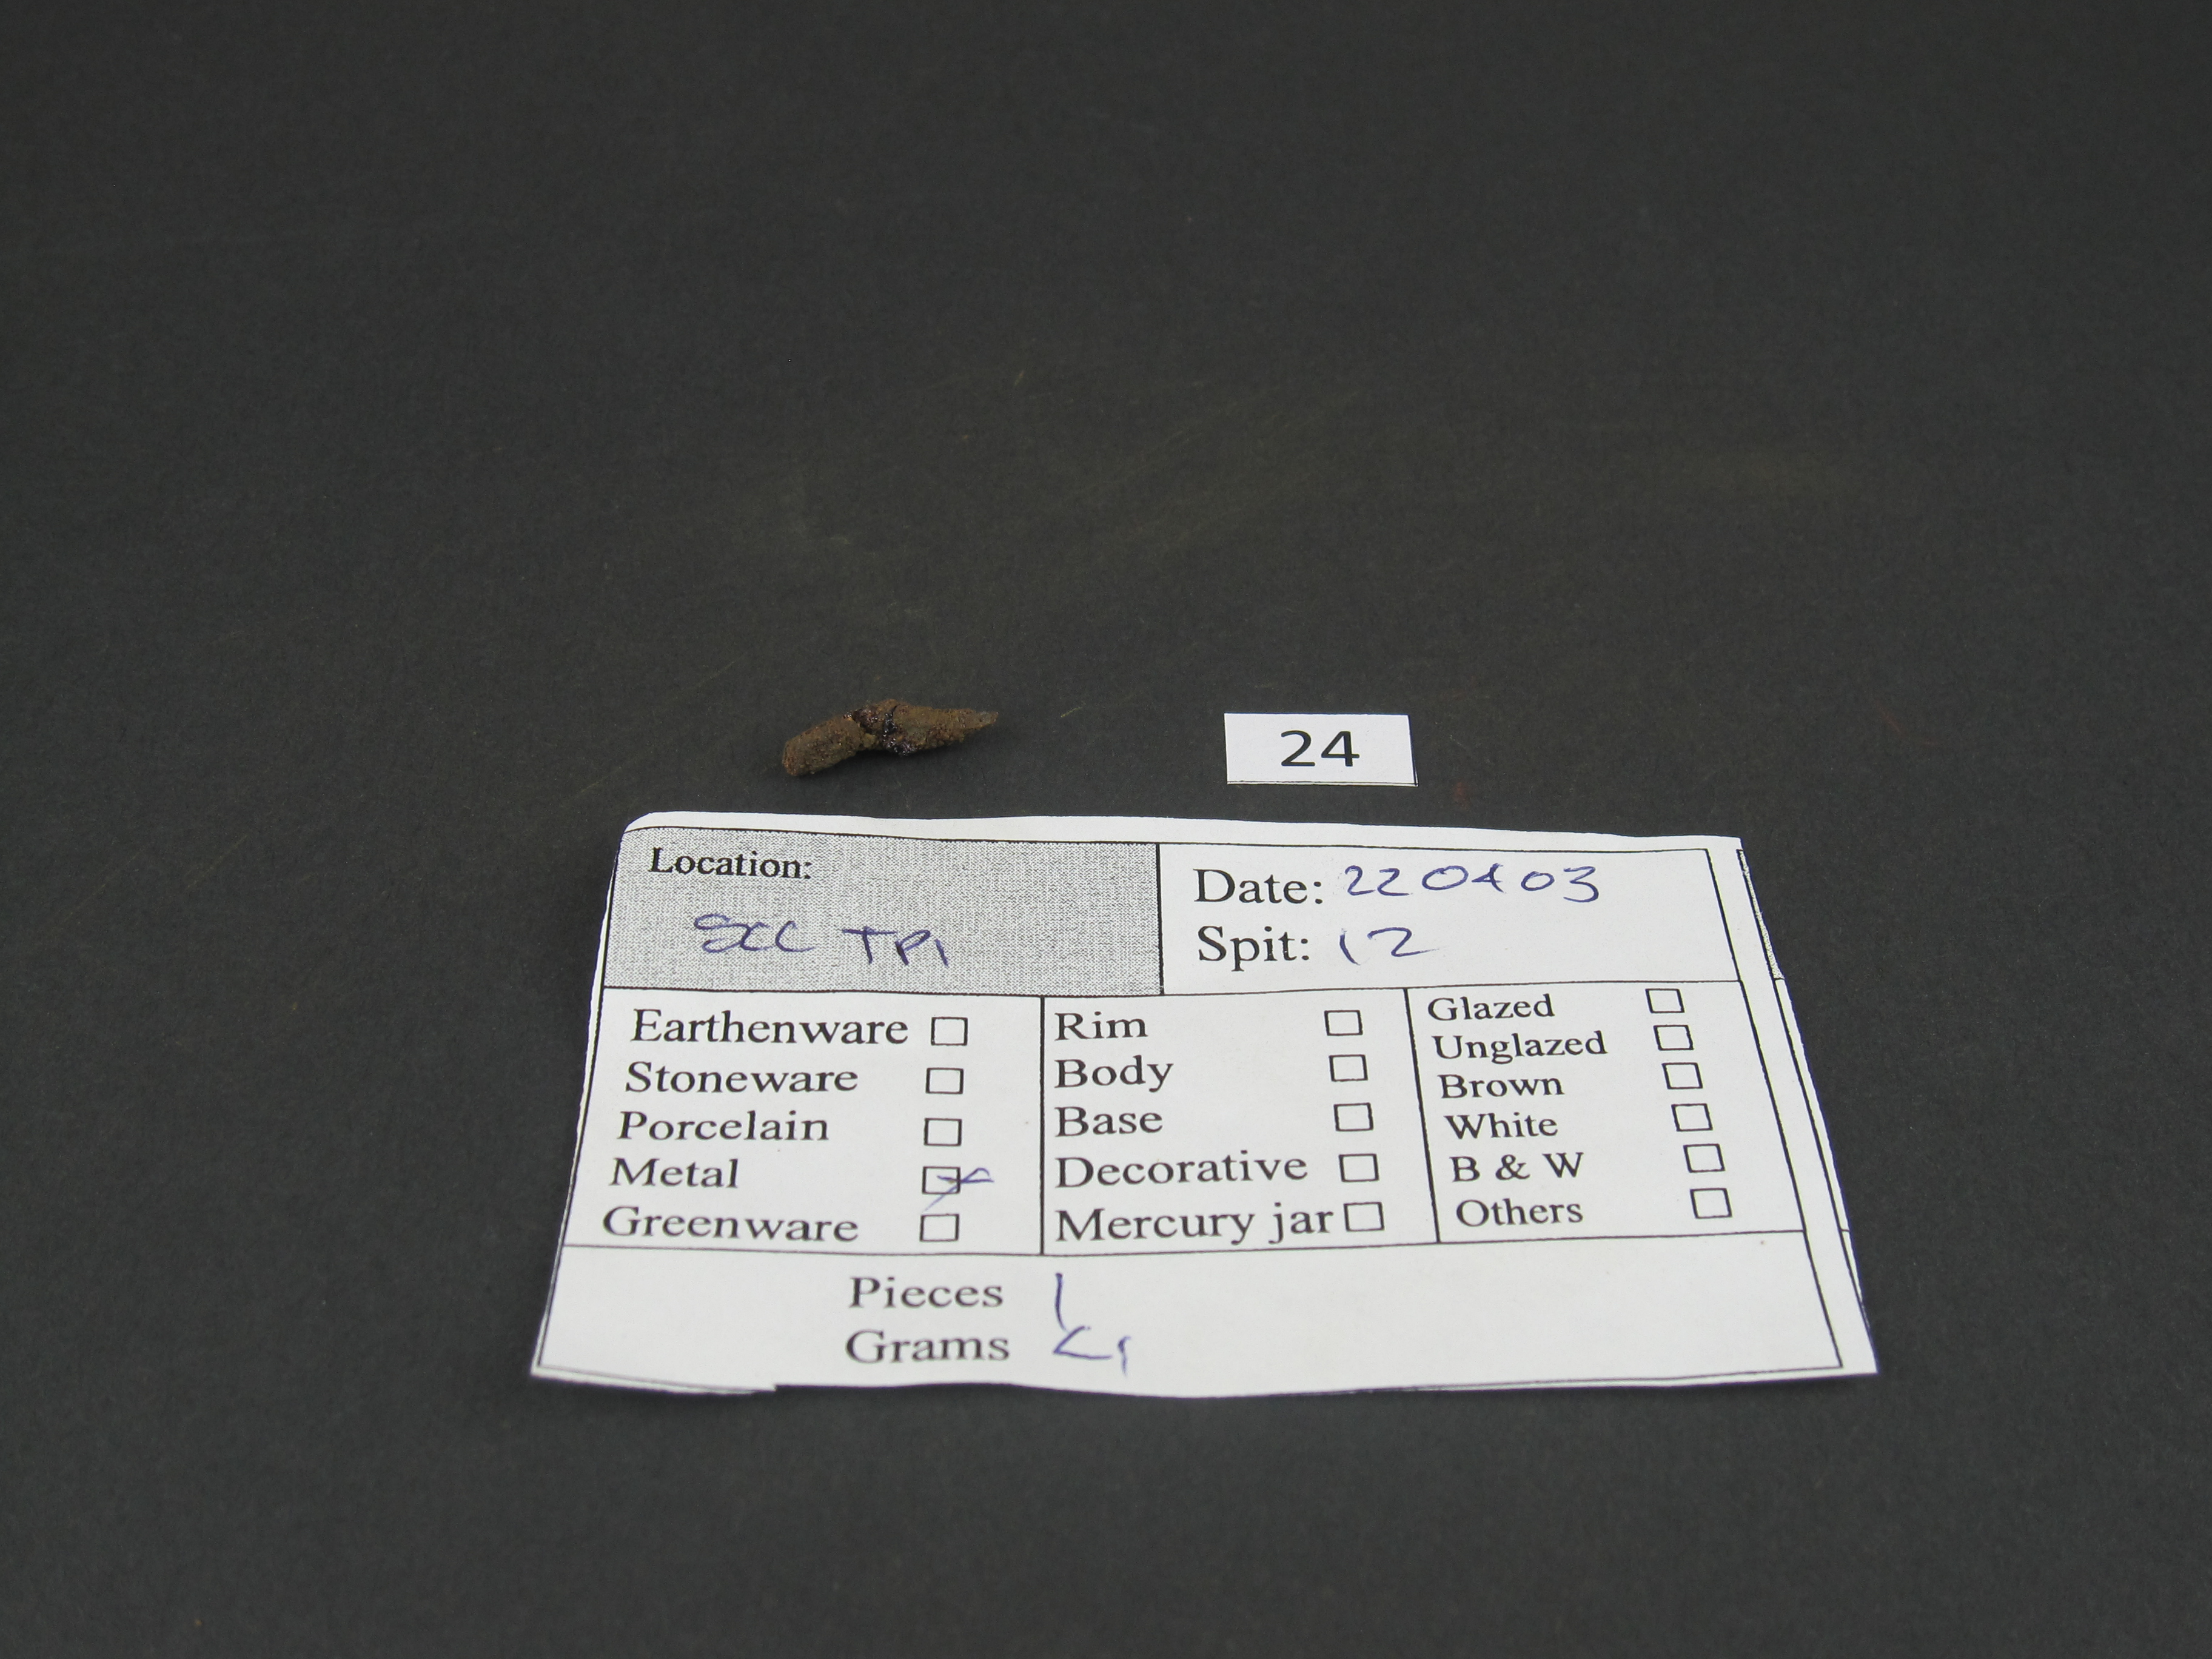 24
Location:
SCC TP1
Date: 220403
Spit: 12
Earthenware
Stoneware
Porcelain
Metal
Greenware
Rim
Body
Base
Decorative
Mercury jar
Glazed
Unglazed
Brown
White
B & W
Others
Pieces 1
Grams <1